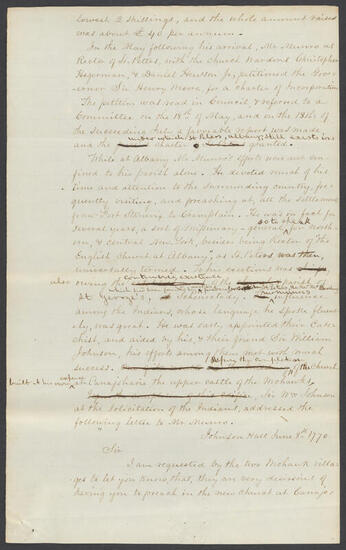 lowest 2 shillings, and the whole amount raised
was about £40 per annum.
In the May following his arrival, Mr Munro as
Rector of St Peters, with the Church Wardens Christopher
Hegerman, & Daniel Hewson Jr, petitioned the Gov-
ernor Sir Henry Moore, for a charter of Incorporation.
The petition was read in Council, & referred to a
Committee on the 18th of May, and on the 18th of
the Succeeding July a favorable report was made
under which St Peters, Albany, still exists was
and the charter granted.
While at Albany Mr Munro's efforts were not con-
fined to his parish alone. He devoted much of his
time and attention to the surrounding country, fre-
quently visiting, and preaching at, all the settlements
from Fort Sterling to Camplain. He was in fact for
so to speak
several years, a sort of missionary-general for North
ern, & central New York, besides being Rector of "the
English Church at Albany," as St Peters, was then,
universally termed. His exertions was
also owing the Church
St George's, Schenectady. influence
among the Indians, whose language he spoke fluent-
ly, was great. He was early appointed their Cate-
chist, and aided by his, & their friend Sir William
Johnson, his efforts among them met with much
success. Before the completion of the Church
built at his own expense
at Canajoharie the upper castle of the Mohawks,
Sir Wm Johnson
at the solicitation of the Indians, addressed the
following letter to Mr Munro.
Johnson Hall June 8th 1770
Sir
I am requested by the two Mohawk villa-
ges to let you know that, they are very desirous of
having you to preach in the new Church at Canajo-